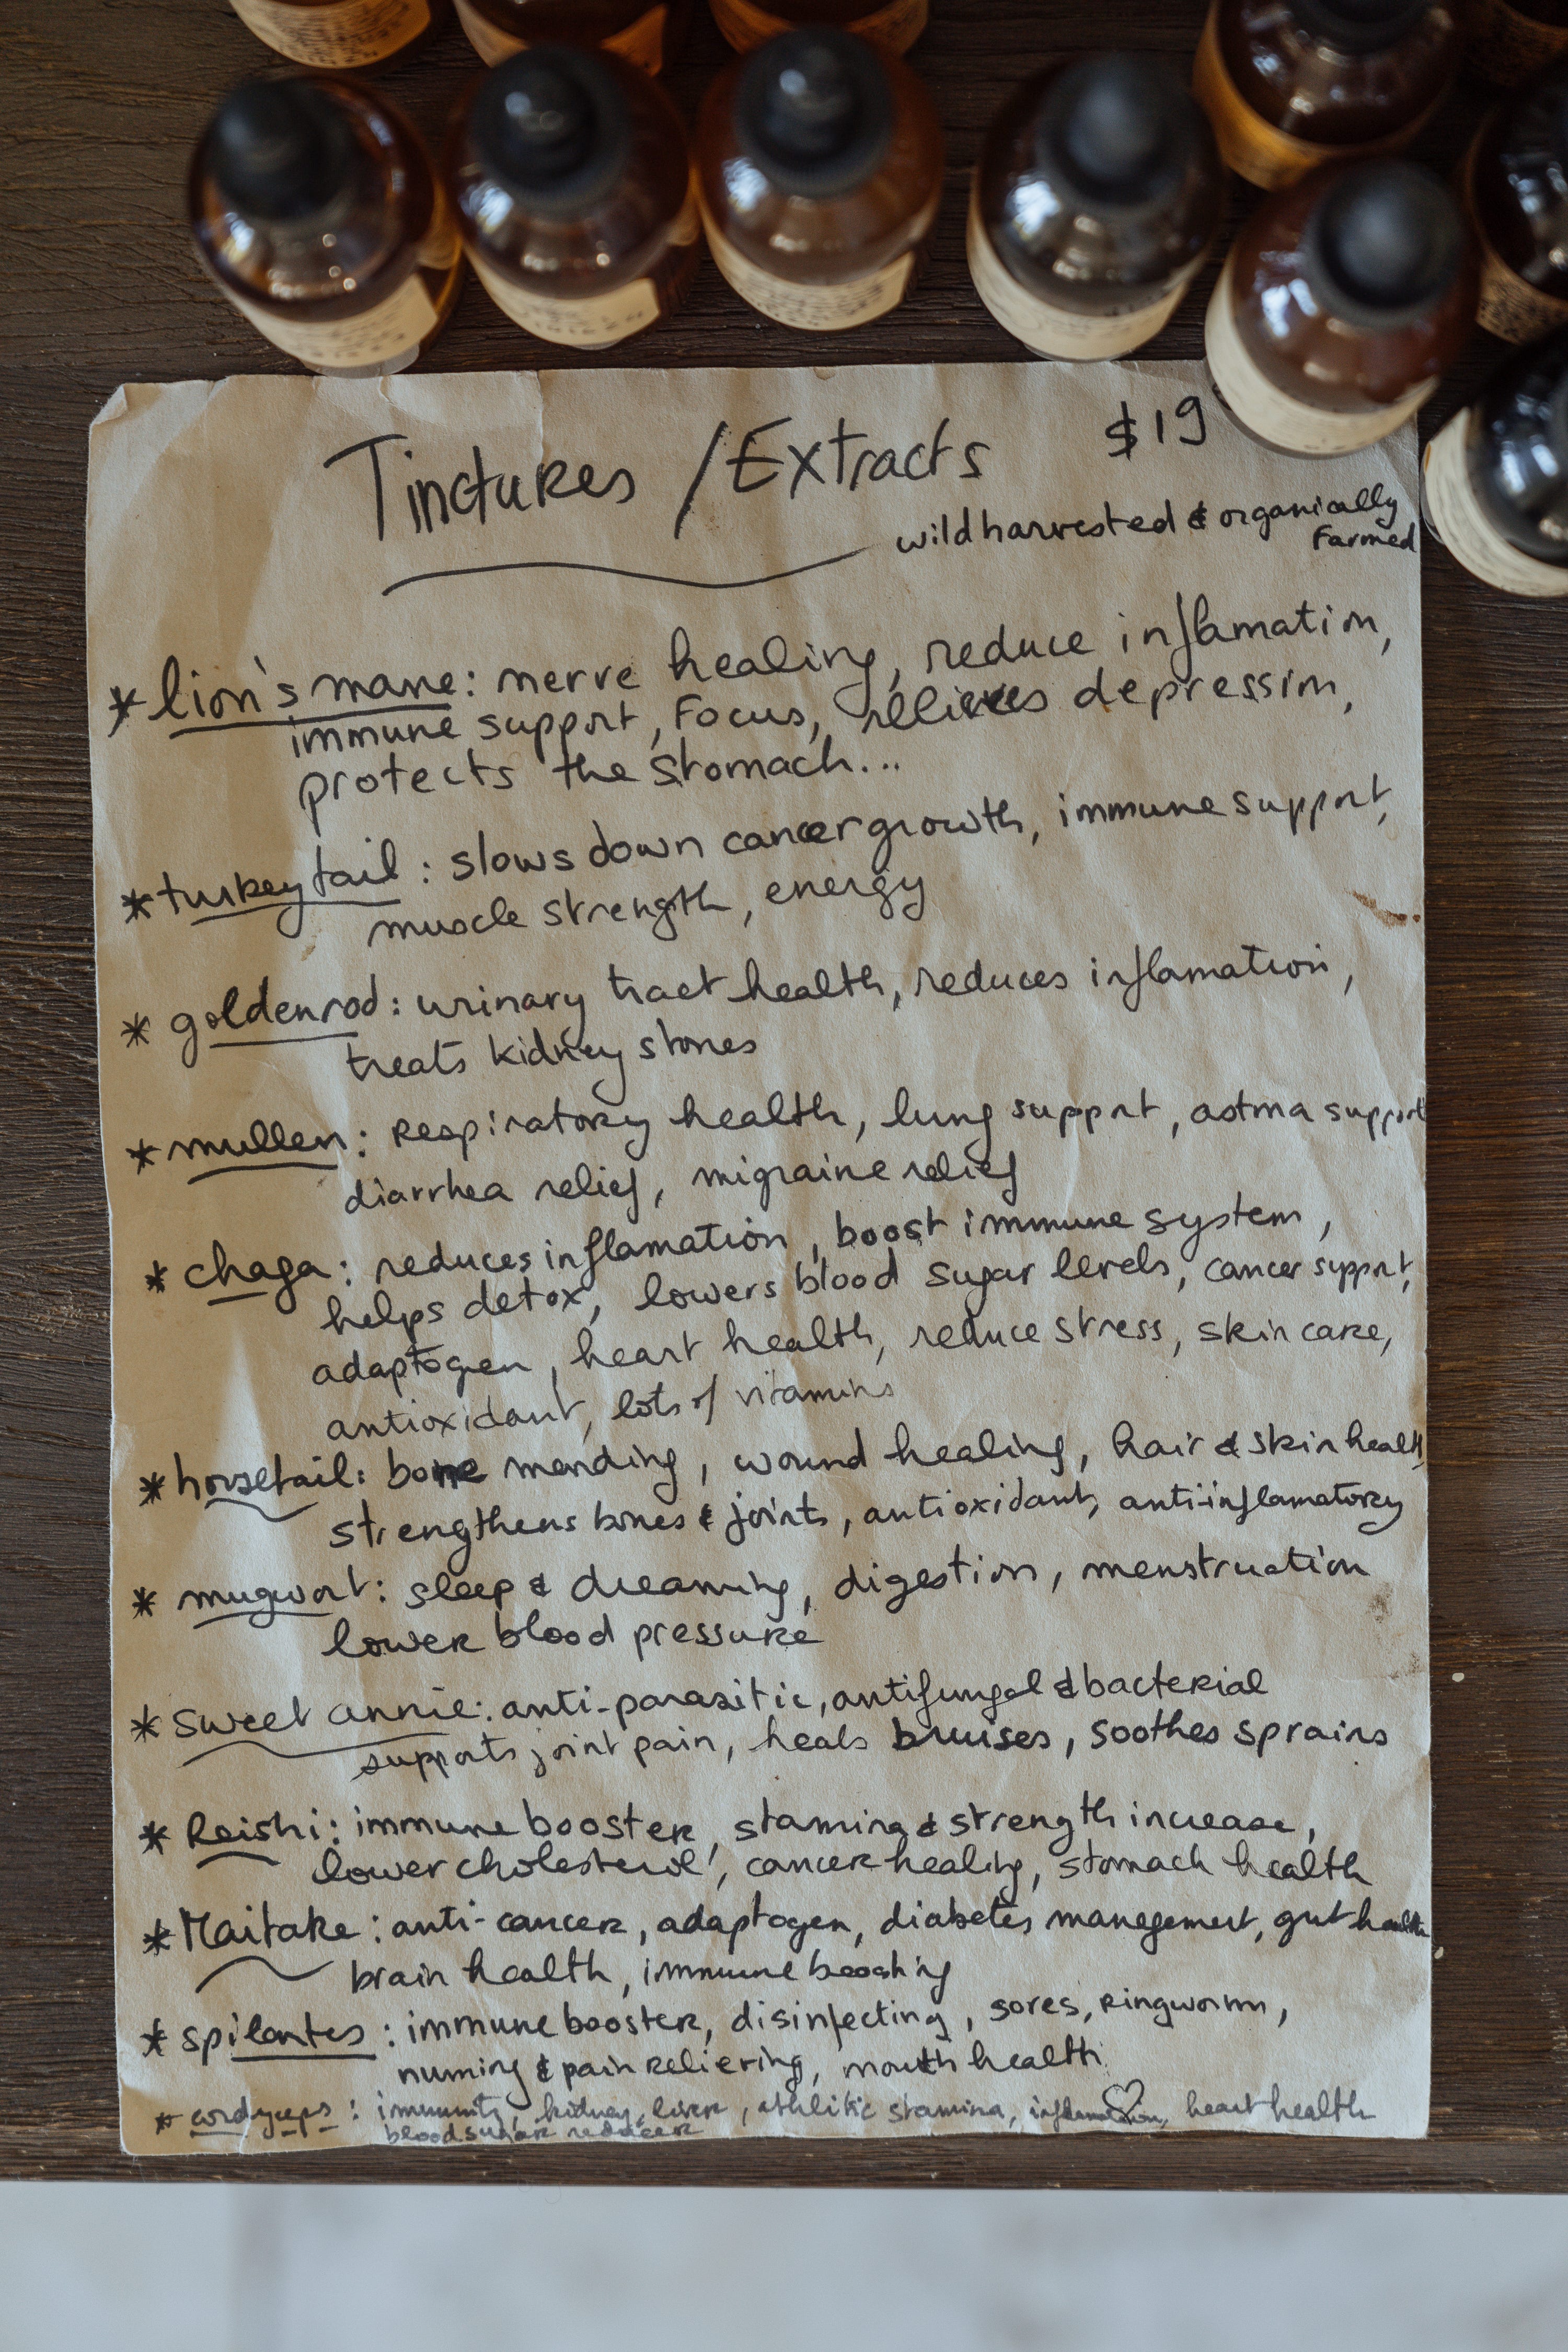 Tinctures / Extracts $19
wildharvested & organically
Farmed
* lion's mane: nerve healing, reduce inflamation,
immune support, Focus, relieves depression,
protects the stomach...
* turkey tail: slows down cancer growth, immune support,
muscle strength, energy
* goldenrod: urinary tract health, reduces inflamation,
treats kidney stones
* mullen: respiratory health, lung support, astma support
diarrhea relief, migraine relief
* chaga: reduces inflamation, boost immune system,
helps detox, lowers blood sugar levels, cancer support,
adaptogen, heart health, reduce stress, skin care,
antioxidant, lots of vitamins
* horsetail: bone mending, wound healing, hair & skin health,
strengthens bones & joints, antioxidant, anti-inflamatory
* mugwort: sleep & dreaming, digestion, menstruation
lower blood pressure
* sweet annie: anti-parasitic, antifungal & bacterial
supports joint pain, heals bruises, soothes sprains
* Reishi: immune booster, stamina & strength increase,
lower cholesterol, cancer healing, stomach health
* Maitake: anti-cancer, adaptogen, diabetes management, gut health
brain health, immune boosting
* spilantes: immune booster, disinfecting, sores, ringworm,
numing & pain reliering, mouth health
* cordyceps: immunity, kidney, liver, athlitic stamina, inflamation, heart health
blood sugar reducer